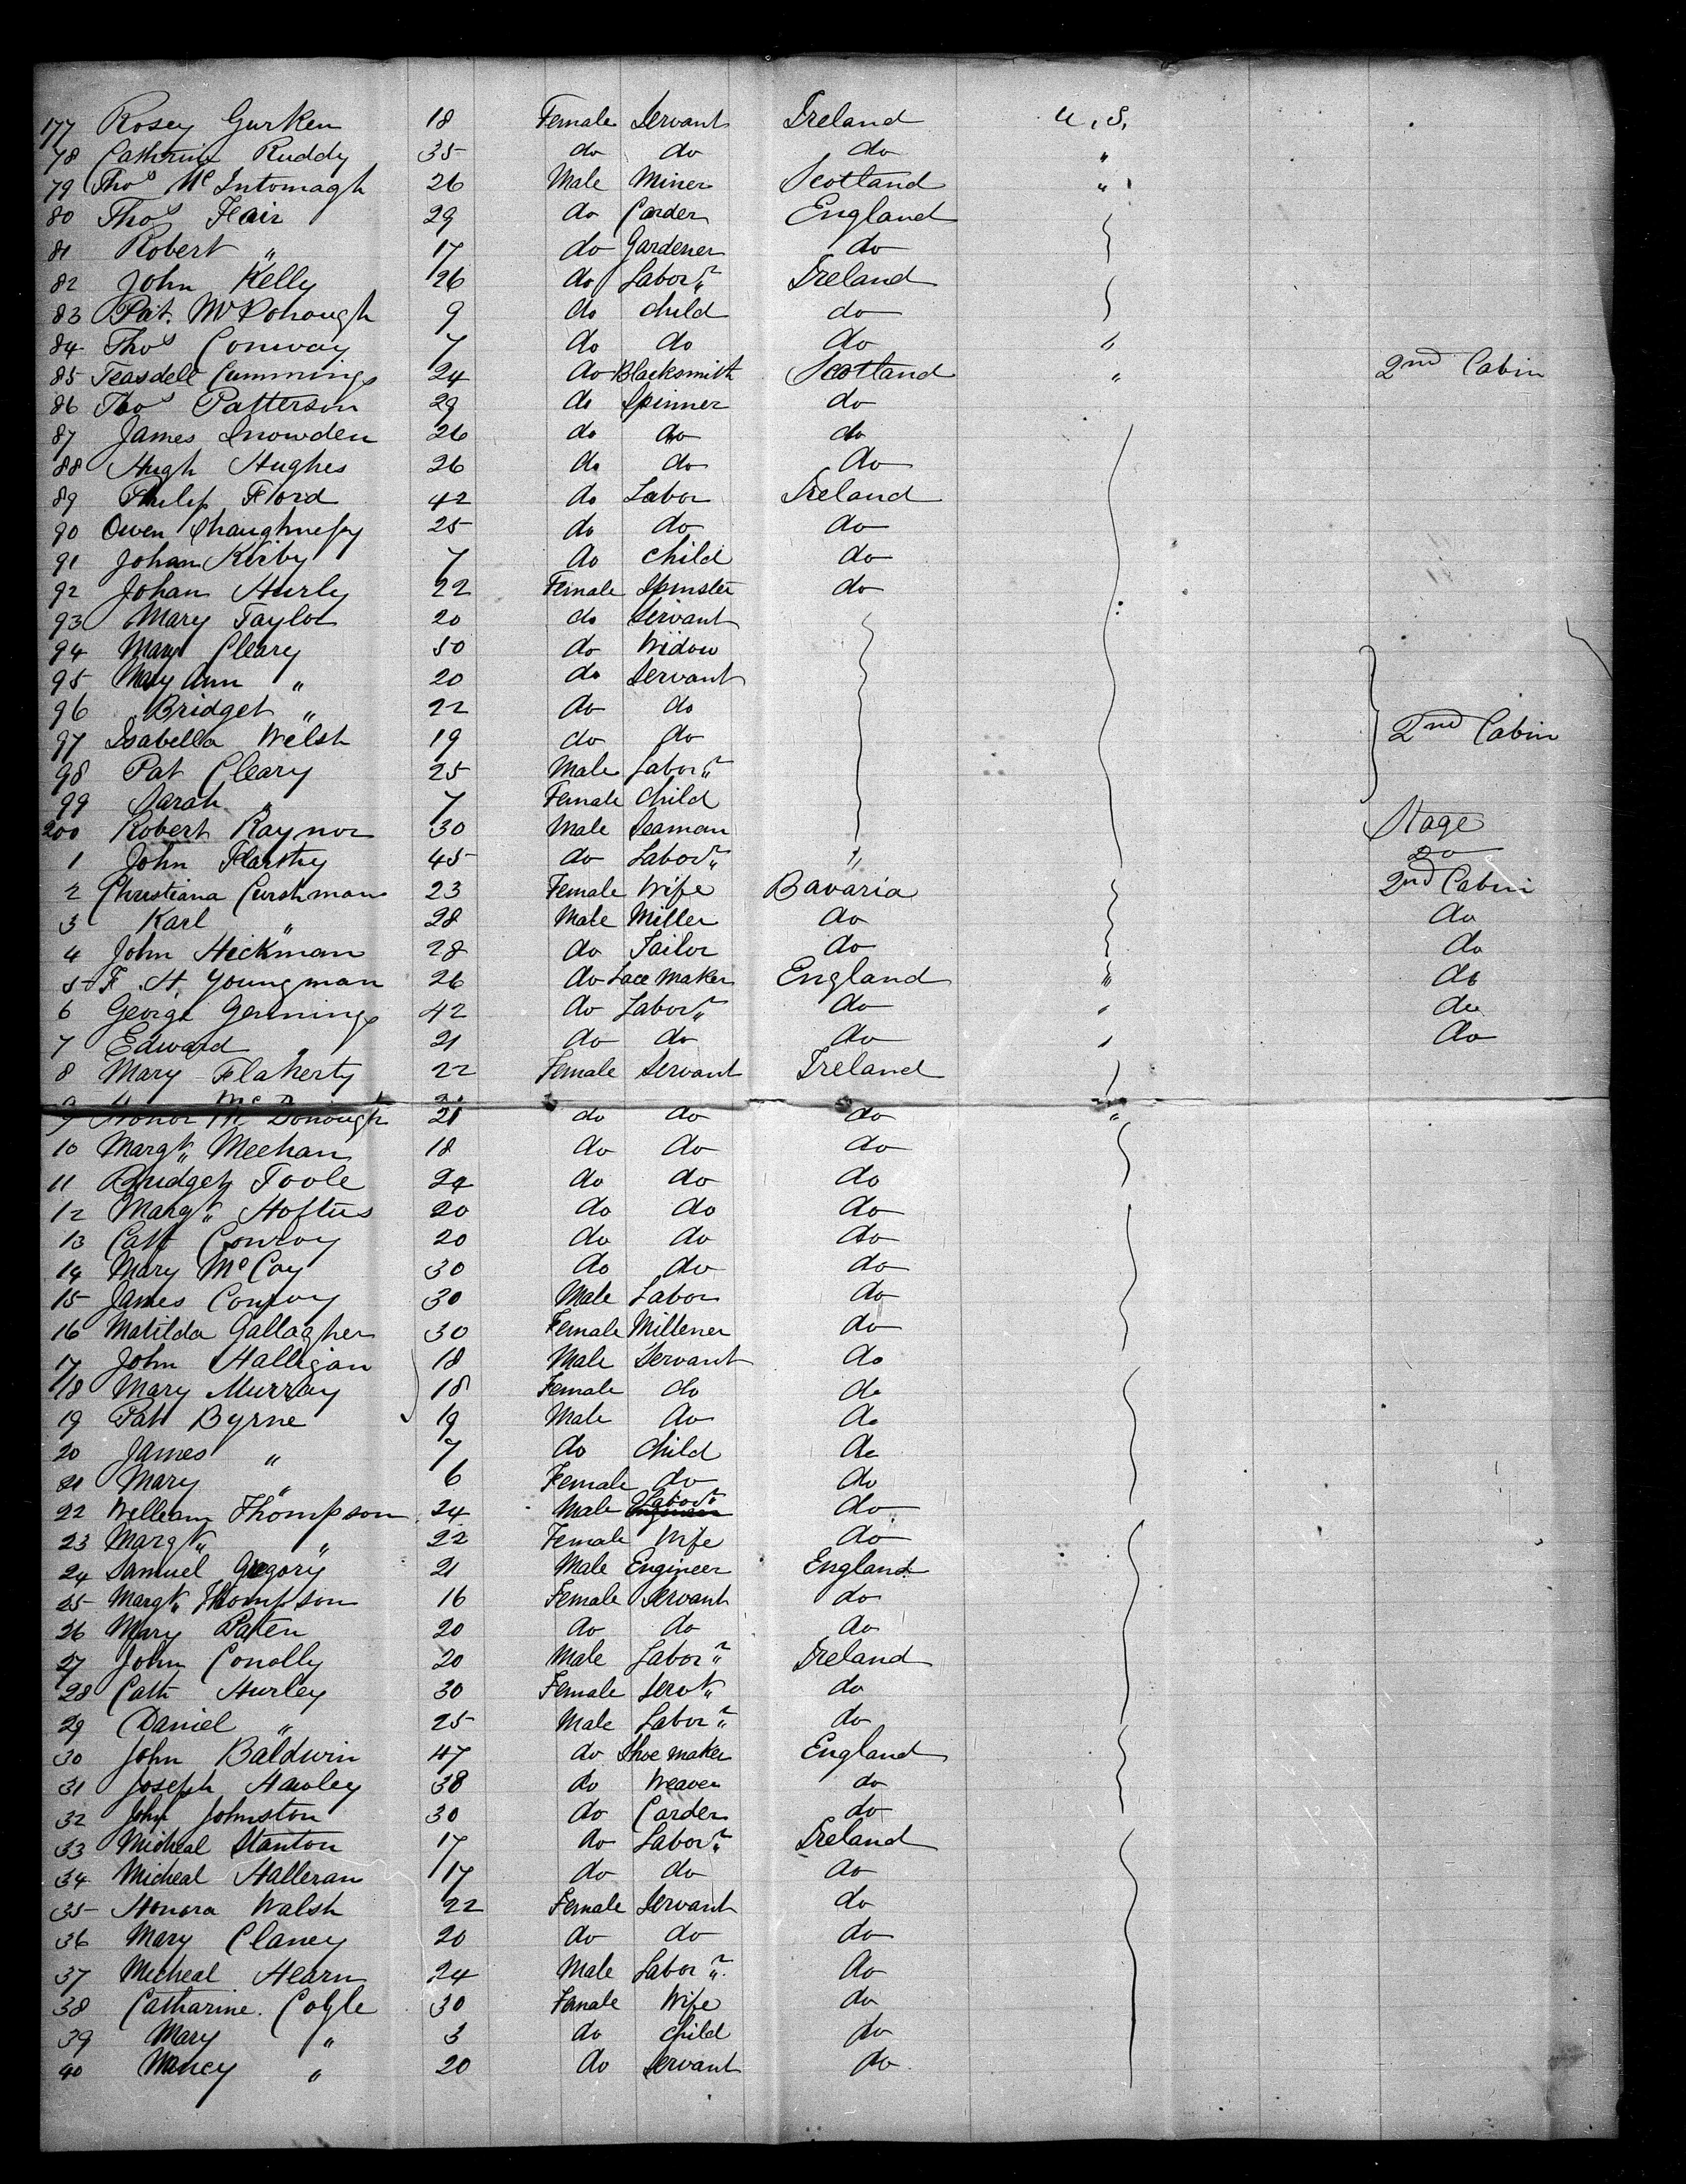 177 Rosey Gurken 18 Female Servant Ireland U.S.
78 Cathrine Ruddy 35 do do do "
79 Thos Mc Intomagh 26 Male Miner Scotland "
80 Thos Hair 29 do Carder England
81 Robert " 17 do Gardener do
82 John Kelly 26 do Labor" Ireland
83 Pat. McDonough 9 do child do
84 Thos Conway 7 do do do "
85 Teasdell Cummings 24 do Blacksmith Scotland " 2nd Cabin
86 Thos Patterson 29 do Spinner do
87 James Snowden 26 do do do
88 Hugh Hughes 26 do do do
89 Philip Ford 42 do Labor Ireland
90 Owen Shaughnessy 25 do do do
91 Johan Kirby 7 do child do
92 Johan Hurly 22 Female Spinster do
93 Mary Taylor 20 do Servant
94 Mary Cleary 50 do Widow
95 Mary Ann " 20 do Servant
96 Bridget " 22 do do
97 Isabella Welsh 19 do do 2nd Cabin
98 Pat Cleary 25 Male Labor"
99 Sarah " 7 Female child
200 Robert Raynor 30 Male Seaman Stage
1 John Harthy 45 do Labor" " do
2 Christiana Curshman 23 Female Wife Bavaria 2nd Cabin
3 Karl " 28 Male Miller do do
4 John Hickman 28 do Tailor do do
5 F. H. Youngman 26 do Lace Maker England " do
6 George Gennings 42 do Labor" do " do
7 Edward " 21 do do do " do
8 Mary Flaherty 22 Female Servant Ireland
9 Honor Mc Donough 21 do do do "
10 Margt" Meehan 18 do do do
11 Bridget Toole 24 do do do
12 Margt" Hoftus 20 do do do
13 Cath Conroy 20 do do do
14 Mary McCoy 30 do do do
15 James Conroy 30 Male Labor do
16 Matilda Gallagher 30 Female Millener do
17 John Halligan 18 Male Servant do
18 Mary Murray 18 Female do do
19 Patt Byrne 19 Male do do
20 James " 7 do child do
21 Mary " 6 Female do do
22 William Thompson 24 Male Labor" do
23 Margt" " 22 Female Wife do
24 Samuel Gregory 21 Male Engineer England
25 Margt" Thompson 16 Female Servant do
26 Mary Paten 20 do do do
27 John Conolly 20 Male Labor" Ireland
28 Cath Hurley 30 Female Servt" do
29 Daniel " 25 Male Labor" do
30 John Baldwin 47 do Shoe maker England
31 Joseph Hawley 38 do Weaver do
32 John Johnston 30 do Carder do
33 Micheal Stanton 17 do Labor" Ireland
34 Micheal Halleran 17 do do do
35 Honora Walsh 22 Female Servant do
36 Mary Clancy 20 do do do
37 Micheal Hearn 24 Male Labor" do
38 Catharine Coyle 30 Female Wife do
39 Mary " 3 do child do
40 Nancy " 20 do Servant do